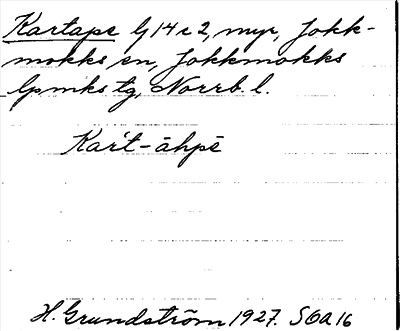 Kartape G 14 c 2, myr, Jokk-
mokks sn, Jokkmokks
lpmks tg, Norrb. l.
Kar't-āhpē
H. Grundström 1927. SOA 16